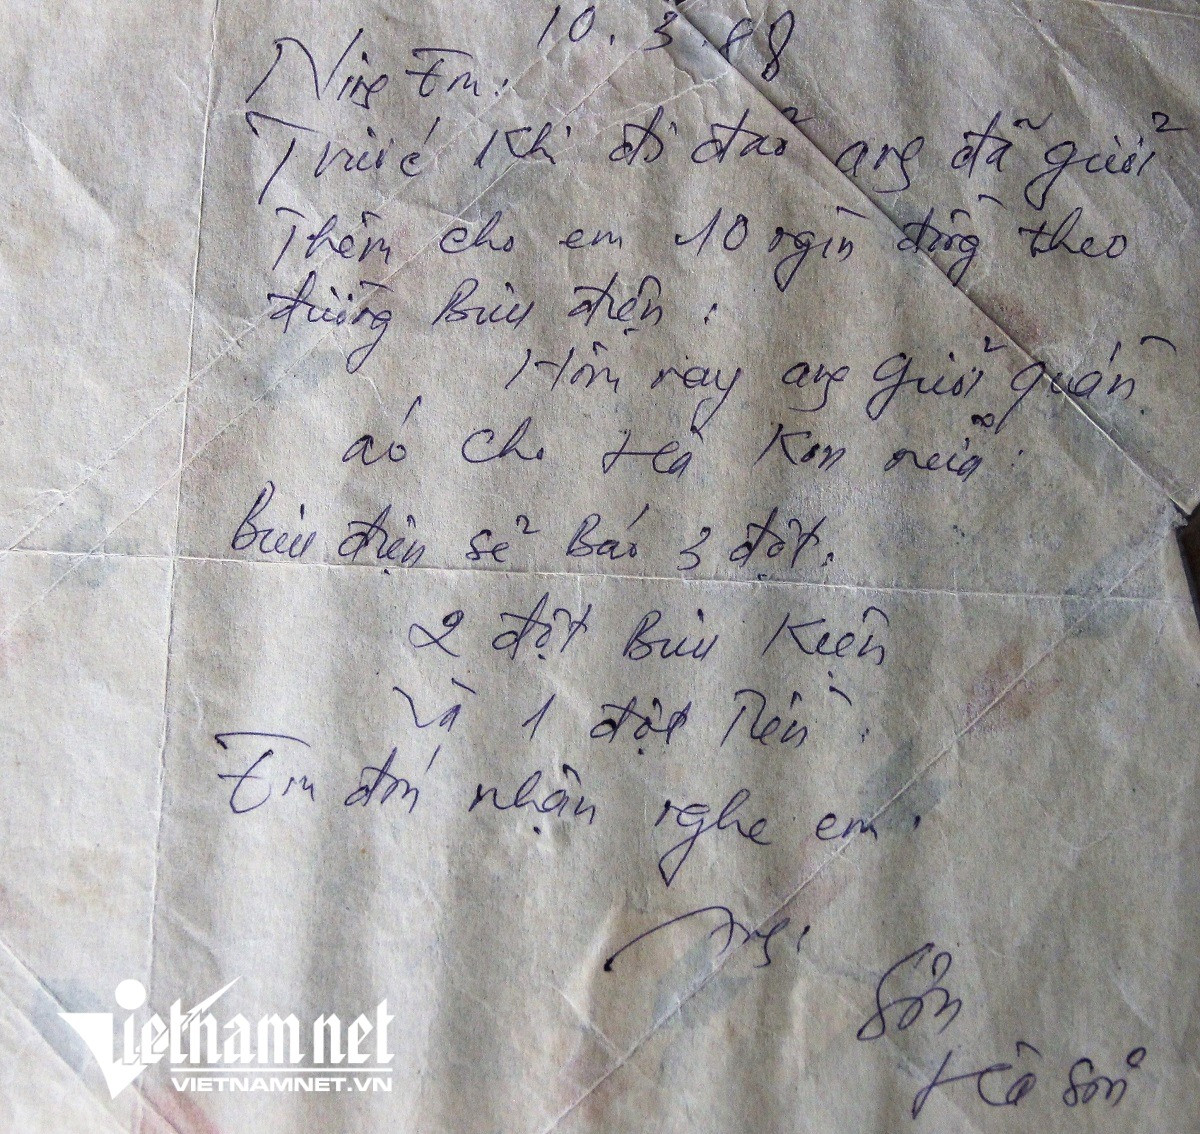 10.3.88
Ninh Em:
Trước khi đi đảo anh đã gửi
Thêm cho em 10 nghìn đồng theo
đường Bưu điện.
Hôm nay anh gửi quần
áo cho Hà Kon nữa.
Bưu điện sẽ Báo 3 đợt.
2 đợt Bưu Kiện
Và 1 đợt Tiền.
Em đón nhận nghe em.
Anh:
Sơn
Hà Sơn
Vietnam net
VIETNAMNET.VN